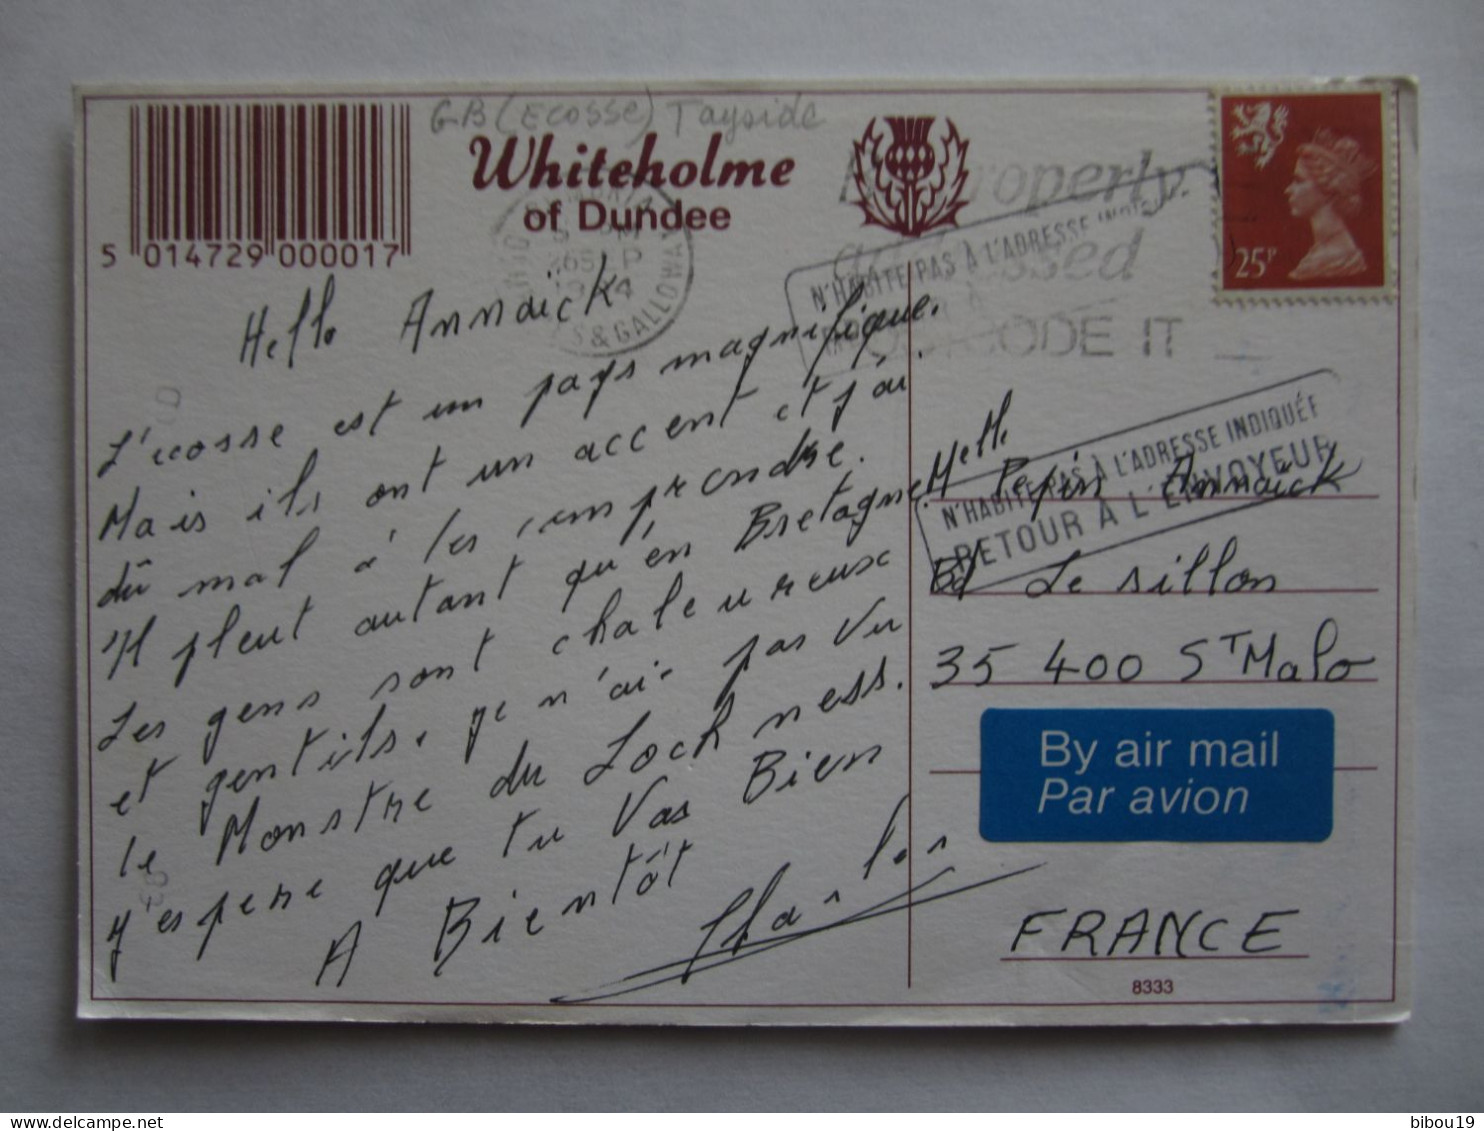 GB (Ecosse) Tayside
Whiteholme
of Dundee
5 014729 000017
S & GALLOWAY
property
addressed
CODE IT
N'HABITE PAS À L'ADRESSE
25P
Hello Annaïck
L'ecosse est un pays magnifique.
Mais ils ont un accent et j'ai
dû mal à les comprendre.
Il pleut autant qu'en Bretagne.
Les gens sont chaleureux
et gentils. je n'ai pas Vu
le Monstre du Loch ness.
j'espere que tu Vas Bien
A Bientôt
Charles
N'HABITE PAS À L'ADRESSE INDIQUÉE
RETOUR À L'ENVOYEUR
Melle Pepin Annaïck
Bd Le sillon
35 400 ST Malo
By air mail
Par avion
FRANCE
8333
bibou19